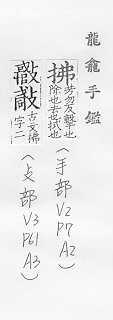 龍龕手鑑
拂 芳勿反擊也
除也去也拭也
(手部 V2 P7 A2)
古文拂
字二
(攴部 V3 P61 A3)